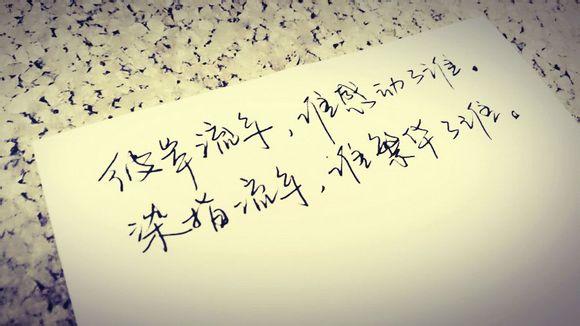 彼岸流年，谁感动了谁。
染指流年，谁繁华了谁。